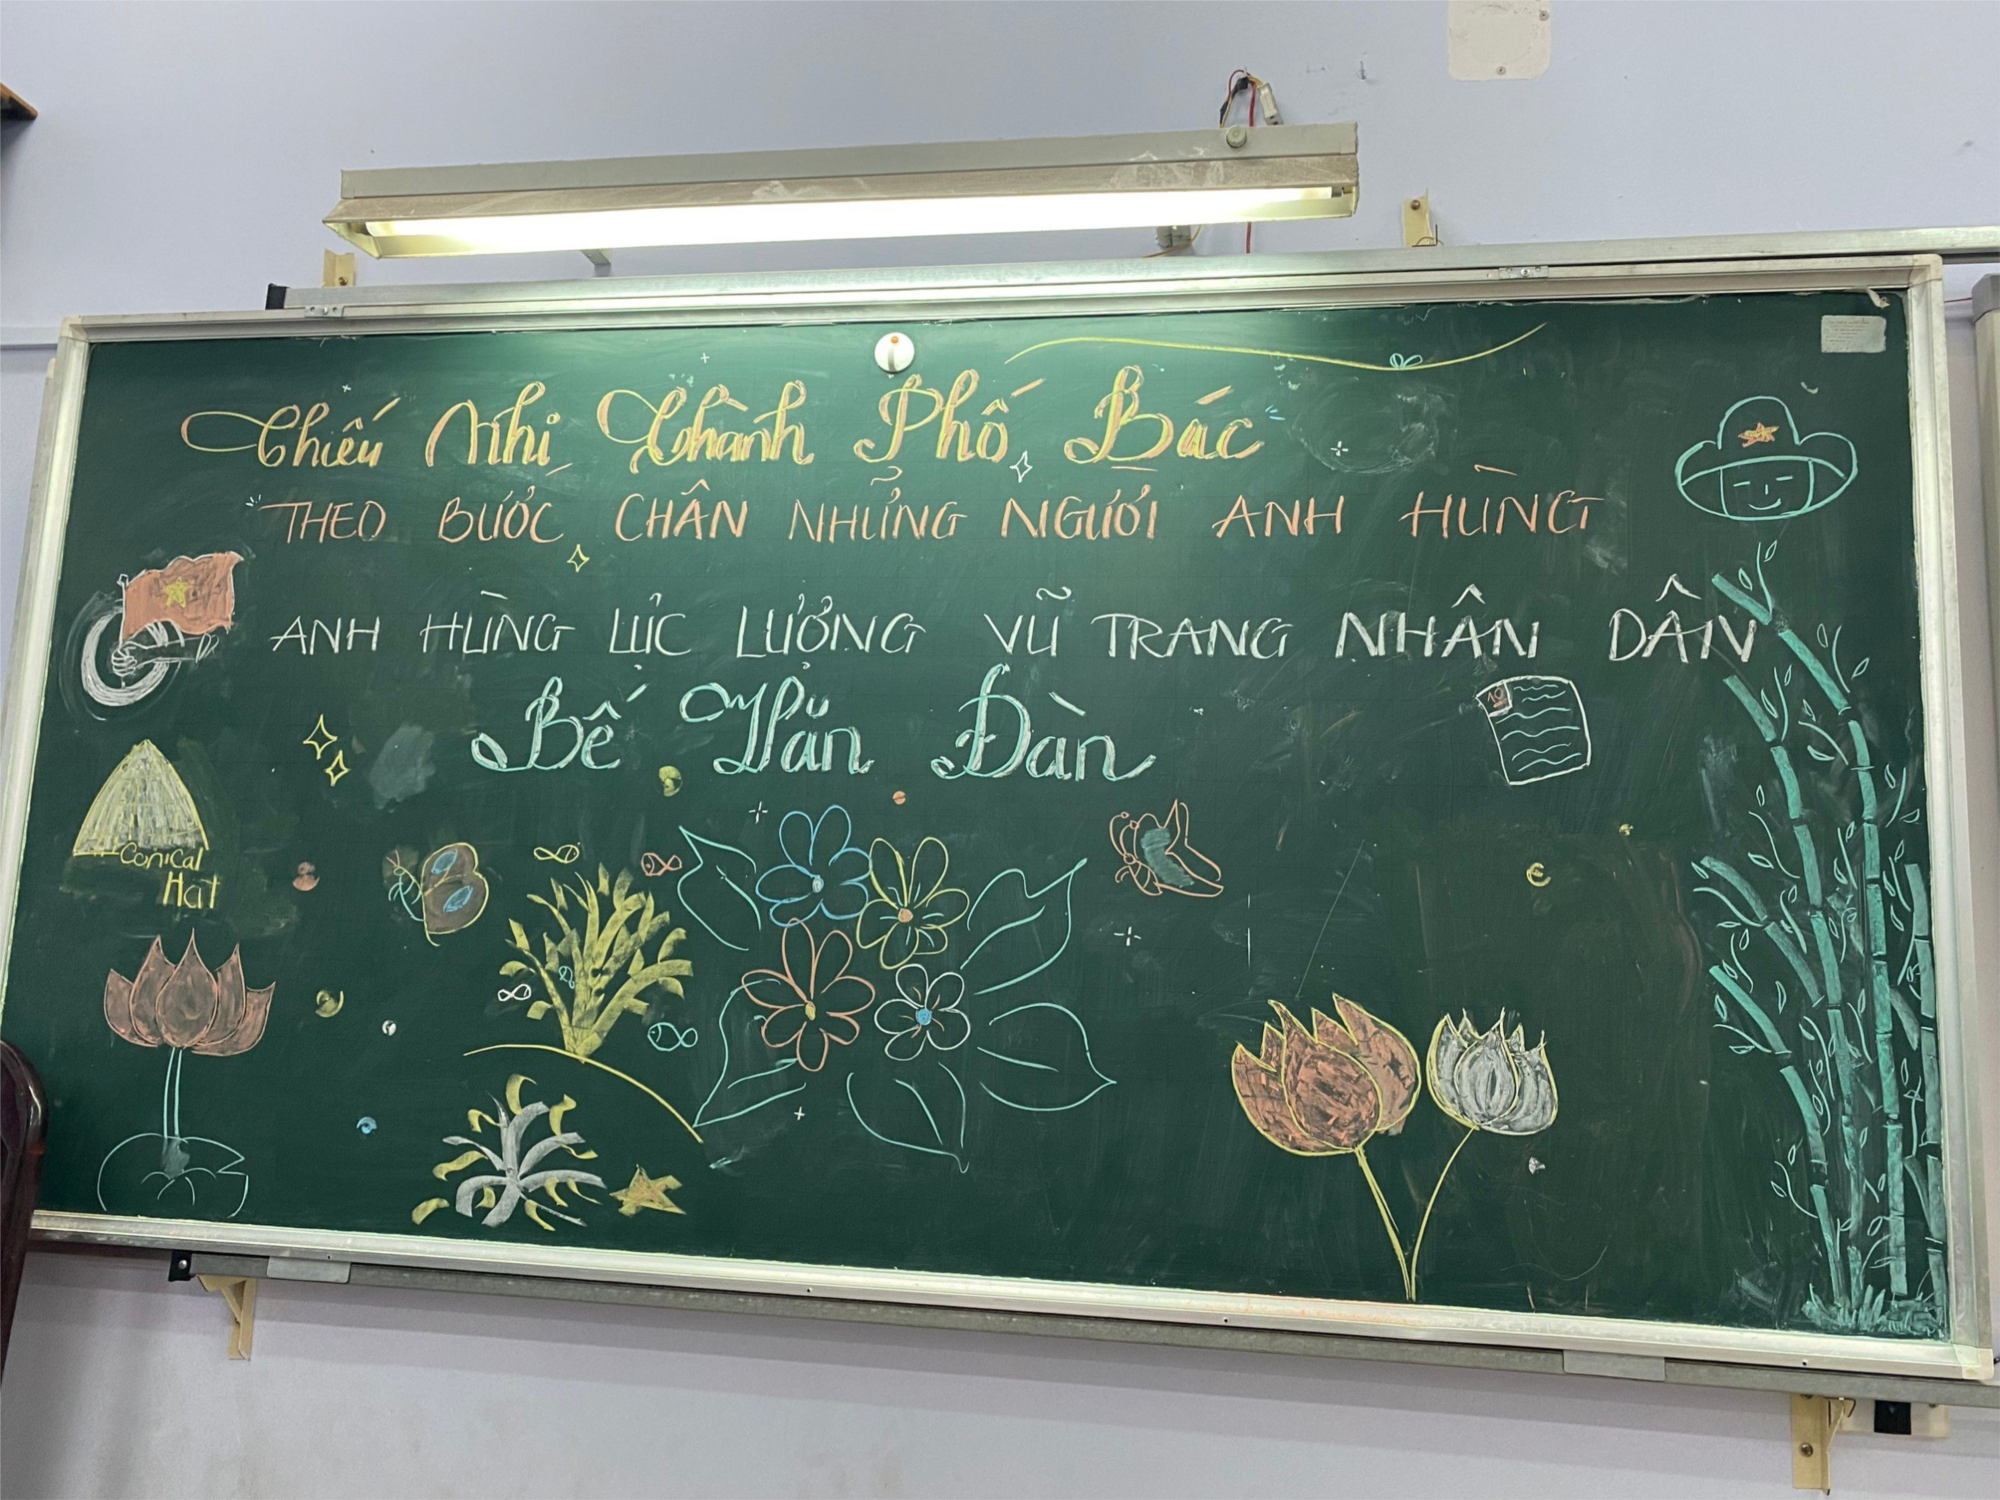 Thiếu Nhi Thành Phố Bác
THEO BƯỚC CHÂN NHỮNG NGƯỜI ANH HÙNG
ANH HÙNG LỰC LƯỢNG VŨ TRANG NHÂN DÂN
Bế Văn Đàn
10
Conical
Hat